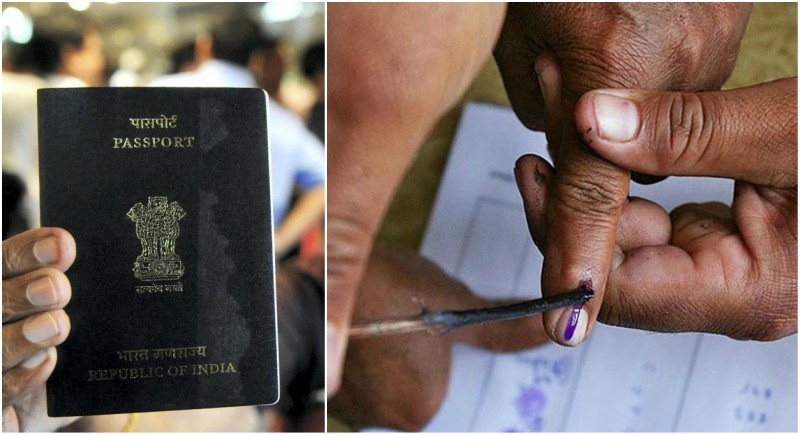 पासपोर्ट
PASSPORT
सत्यमेव जयते
भारत गणराज्य
REPUBLIC OF INDIA